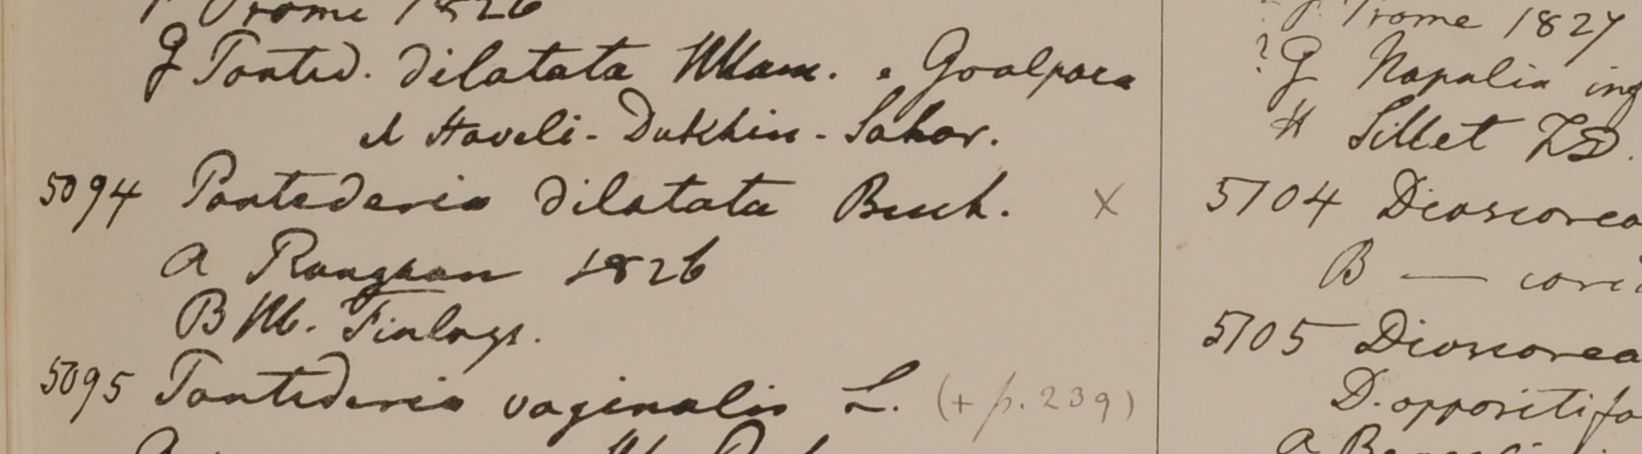 Prome 1826
g Ponted. dilatata HHam. e Goalpara
et Haveli - Dukhin - Sahor.
5094 Pontederia dilatata Buch. ×
a Rangoon 1826
B Hb. Finlays.
5095 Pontederia vaginalis L. (+ p. 239)
Prome 1827
? G Napalia
H Sillet FD.
5104 Dioscorea
B —
5105 Dioscorea
D. oppositifo